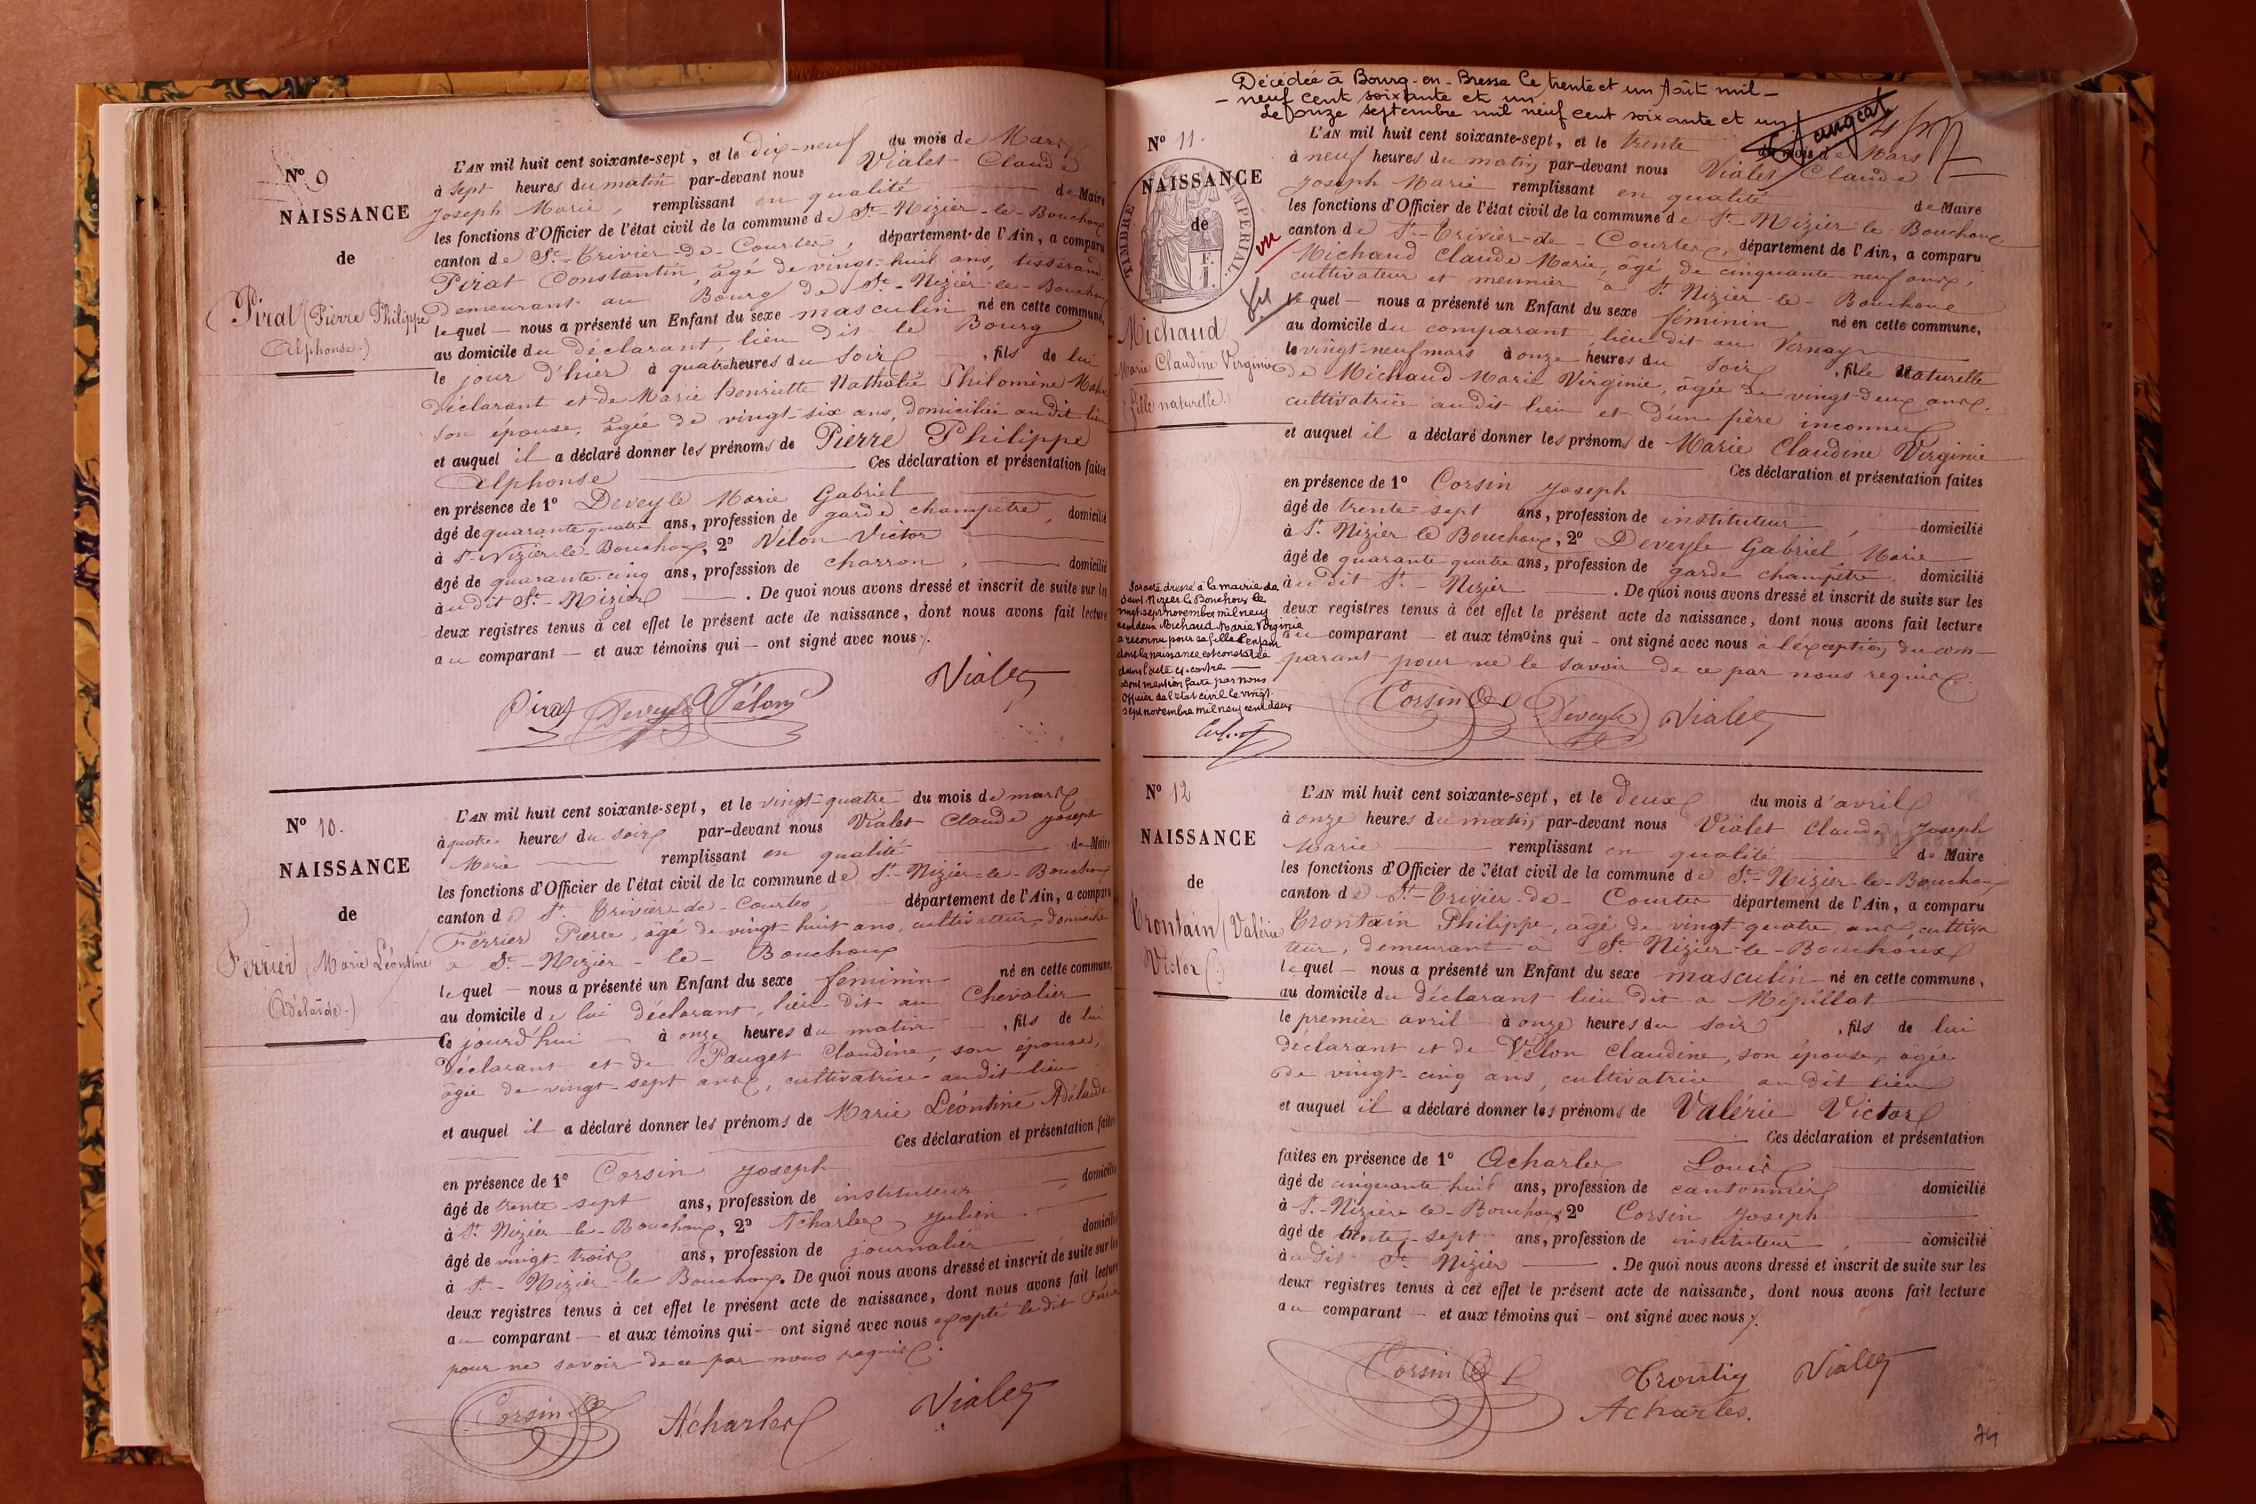 Nº 9
NAISSANCE
de
Pirat (Pierre Philippe
Alphonse.)
L'AN mil huit cent soixante-sept, et le dix-neuf du mois de Mars
à sept heures du matin par-devant nous Vialet Claude
Joseph Marie, remplissant en qualité de Maire
les fonctions d'Officier de l'état civil de la commune de St-Nizier-le-Bouchoux
canton de St-Trivier-de-Courtes, département de l'Ain, a comparu
Pirat Constantin, âgé de vingt-huit ans, tisserand
Demeurant au Bourg de St-Nizier-le-Bouchoux
lequel — nous a présenté un Enfant du sexe masculin né en cette commune,
au domicile du déclarant, lieu dit le Bourg
le jour d'hier à quatre heures du soir, fils de lui
déclarant et de Marie Henriette Nathalie Philomène
son épouse, âgée de vingt-six ans, domiciliée au dit lieu
et auquel il a déclaré donner les prénoms de Pierre Philippe
Alphonse Ces déclaration et présentation faites
en présence de 1º Deveyle Marie Gabriel
âgé de quarante quatre ans, profession de garde champêtre, domicilié
à St-Nizier-le-Bouchoux, 2º Vélon Victor
âgé de quarante-cinq ans, profession de charron, domicilié
au dit St-Nizier. De quoi nous avons dressé et inscrit de suite sur les
deux registres tenus à cet effet le présent acte de naissance, dont nous avons fait lecture
au comparant — et aux témoins qui — ont signé avec nous.
Pirat Deveyle Vélon Vialet
Nº 10.
NAISSANCE
de
Ferrier (Marie Léontine
Adélaïde.)
L'AN mil huit cent soixante-sept, et le vingt-quatre du mois de mars
à quatre heures du soir par-devant nous Vialet Claude Joseph
Marie remplissant en qualité de Maire
les fonctions d'Officier de l'état civil de la commune de St-Nizier-le-Bouchoux
canton de St-Trivier-de-Courtes, département de l'Ain, a comparu
Ferrier Pierre, âgé de vingt huit ans, cultivateur, domicilié
à St-Nizier-le-Bouchoux
lequel — nous a présenté un Enfant du sexe feminin né en cette commune,
au domicile de lui déclarant, lieu dit au Chevalier
Ce jourd'hui à onze heures du matin, fils de lui
Déclarant et de Pauget Claudine, son épouse,
âgée de vingt-sept ans, cultivatrice au dit lieu
et auquel il a déclaré donner les prénoms de Marie Léontine Adélaïde
Ces déclaration et présentation faites
en présence de 1º Corsin Joseph
âgé de trente sept ans, profession de instituteur, domicilié
à St Nizier-le-Bouchoux, 2º Acharles Julien
âgé de vingt-trois ans, profession de journalier domicilié
à St-Nizier-le Bouchoux. De quoi nous avons dressé et inscrit de suite sur les
deux registres tenus à cet effet le présent acte de naissance, dont nous avons fait lecture
au comparant — et aux témoins qui — ont signé avec nous excepté le dit
pour ne savoir de ce par nous requis.
Corsin Acharles Vialet
Décédée à Bourg-en-Bresse le trente et un Août mil-
-neuf cent soixante et un
le onze septembre mil neuf cent soixante et un
Nº 11.
TIMBRE IMPÉRIAL
NAISSANCE
de
vu
Michaud
Marie Claudine Virginie
(fille naturelle.)
L'AN mil huit cent soixante-sept, et le trente du mois de Mars
à neuf heures du matin par-devant nous Vialet Claude
Joseph Marie remplissant en qualité de Maire
les fonctions d'Officier de l'état civil de la commune de St-Nizier le Bouchoux
canton de St-Trivier-de-Courtes, département de l'Ain, a comparu
Michaud Claude Marie, âgé de cinquante-neuf ans,
cultivateur et meunier à St Nizier-le-Bouchoux
lequel — nous a présenté un Enfant du sexe féminin, né en cette commune,
au domicile du comparant, lieu dit au Vernay
le vingt-neuf mars à onze heures du soir, fille naturelle
de Michaud Marie Virginie, âgée de vingt-deux ans,
cultivatrice au dit lieu et d'un père inconnu
et auquel il a déclaré donner les prénoms de Marie Claudine Virginie
Ces déclaration et présentation faites
en présence de 1º Corsin Joseph
âgé de trente-sept ans, profession de instituteur, domicilié
à St Nizier le Bouchoux, 2º Deveyle Gabriel Marie
âgé de quarante quatre ans, profession de garde champêtre, domicilié
au dit St-Nizier. De quoi nous avons dressé et inscrit de suite sur les
deux registres tenus à cet effet le présent acte de naissance, dont nous avons fait lecture
au comparant — et aux témoins qui — ont signé avec nous à l'exception du com-
parant pour ne le savoir de ce par nous requis.
Corsin Deveyle Vialet
dressé à la mairie de
Saint Nizier le Bouchoux le
vingt-sept novembre mil neuf
cent deux Michaud Marie Virginie
a reconnu pour sa fille l'enfant
dont la naissance est constatée
dans l'acte ci-contre
dont mention faite par nous
Officier de l'état civil le vingt-
sept novembre mil neuf cent deux
Nº 12
NAISSANCE
de
Trontain (Valérie
Victor)
L'AN mil huit cent soixante-sept, et le deux du mois d'avril
à onze heures du matin par-devant nous Vialet Claude Joseph
Marie remplissant en qualité de Maire
les fonctions d'Officier de l'état civil de la commune de St-Nizier-le-Bouchoux
canton de St-Trivier-de-Courtes département de l'Ain, a comparu
Trontain Philippe, âgé de vingt quatre ans, cultiva
teur, demeurant à St Nizier-le-Bouchoux
lequel — nous a présenté un Enfant du sexe masculin né en cette commune,
au domicile du déclarant lieu dit à Mépillat
le premier avril à onze heures du soir, fils de lui
déclarant et de Vélon Claudine, son épouse, âgée
de vingt-cinq ans, cultivatrice au dit lieu
et auquel il a déclaré donner les prénoms de Valérie Victor
Ces déclaration et présentation
faites en présence de 1º Acharles Louis
âgé de cinquante huit ans, profession de cantonnier domicilié
à St-Nizier le-Bouchoux, 2º Corsin Joseph
âgé de trente-sept ans, profession de instituteur, domicilié
au dit St Nizier. De quoi nous avons dressé et inscrit de suite sur les
deux registres tenus à cet effet le présent acte de naissance, dont nous avons fait lecture
au comparant — et aux témoins qui — ont signé avec nous.
Corsin Vialet
Acharles.
74